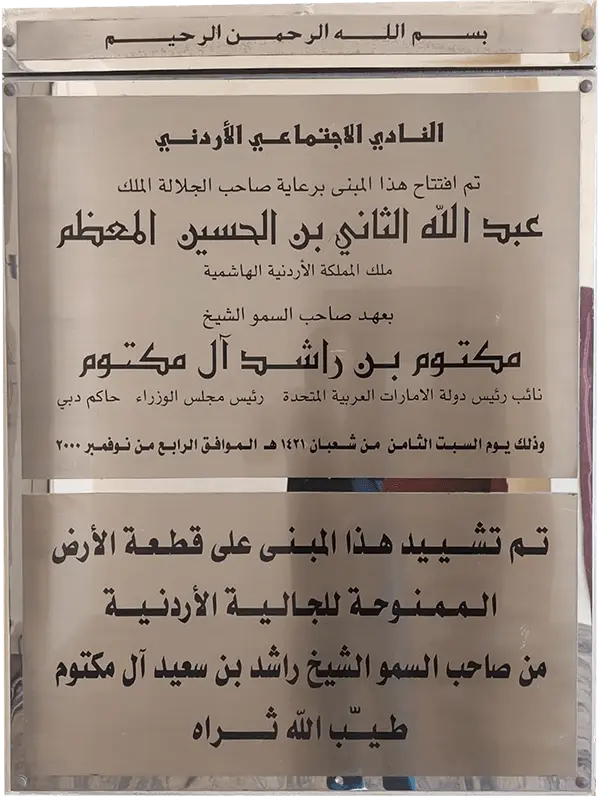 بسم الله الرحمن الرحيم
النادي الاجتماعي الأردني
تم افتتاح هذا المبنى برعاية صاحب الجلالة الملك
عبد الله الثاني بن الحسين المعظم
ملك المملكة الأردنية الهاشمية
بعهد صاحب السمو الشيخ
مكتوم بن راشد آل مكتوم
نائب رئيس دولة الامارات العربية المتحدة رئيس مجلس الوزراء حاكم دبي
وذلك يوم السبت الثامن من شعبان ١٤٢١ هـ الموافق الرابع من نوفمبر ٢٠٠٠
تم تشييد هذا المبنى على قطعة الأرض
الممنوحة للجالية الأردنية
من صاحب السمو الشيخ راشد بن سعيد آل مكتوم
طيّب الله ثراه